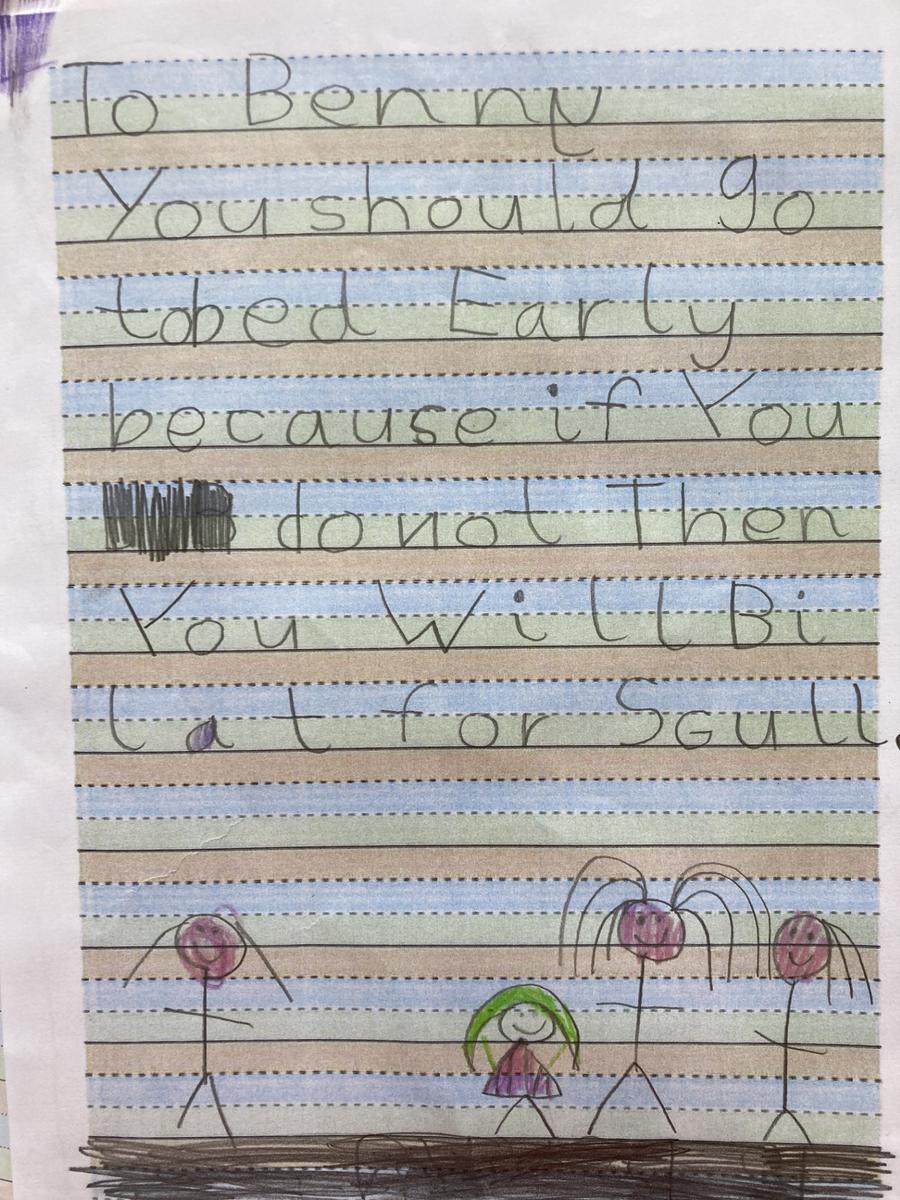 To Benny
You should go
tobed Early
because if You
do not Then
You Will Bi
lat for Scull.